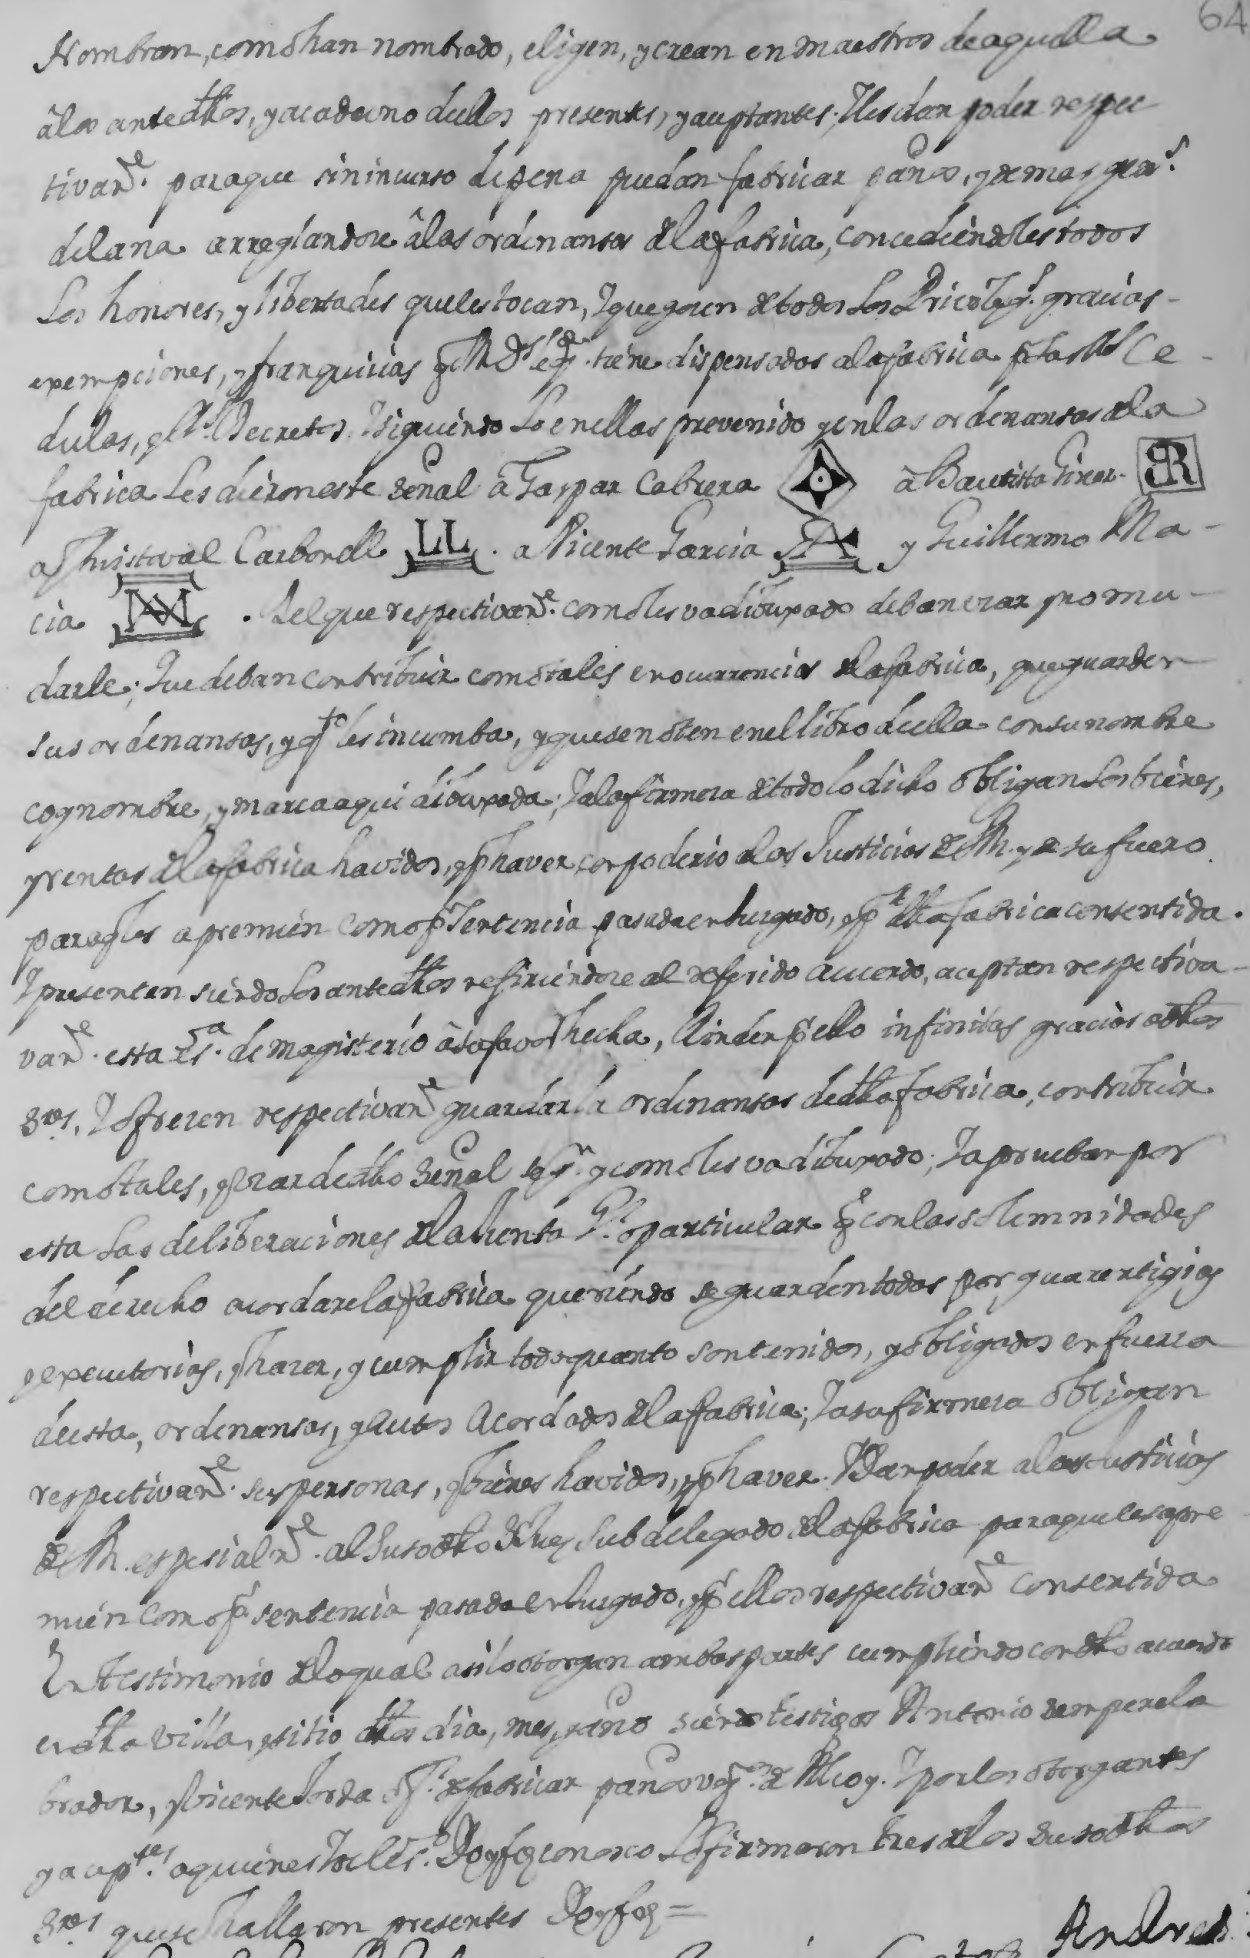 64
Nombran, como han nombrado, eligen, y crean en maestros de aquella
â los antedhos, y a cada uno dellos presentes, y aceptantes; Y les dan poder respec
tivamte. para que sin incurso de pena puedan fabricar paños, y demas gens.
de lana arreglandose â las ordenansas de la fabrica, concediendoles todos
Los honores, y libertades que les tocan, Y que gozen de todos los Privilegs. gracias
exempciones, y franquicias q Su Magd. tiene dispensados a la fabrica Ce-
dulas, y Rs. Decretos, Y siguiendo Lo en ellas prevenido y en las ordenansas de la
fabrica Les dieron este señal â Gaspar Cabrera â Bautista Giner. BR
a Christoval Carbonell LL . a Vicente Garcia A y Guillermo Ma-
cia M . Del que respectivamte. como les va dibuxado deban usar y no mu-
darle; Que deban contribuir como tales en ocurrencias de la fabrica, que guarden
sus ordenansas, y qto les incumba, y que se noten en el libro de ella con su nombre
cognombre, y marca aqui dibuxada; Y a la firmeza de todo lo dicho obligan Los bienes,
y rentas de la fabrica havidos, y p haver, con poderio a las Justicias de S M. y de su fuero
para q les apremien como p sentencia pasada en Jusgado, y p dha fabrica consentida.
Y presentes siendo Los antedhos refiriendose al referido acuerdo, aceptan respectiva-
vamte. esta Esra. de magisterio â su favor hecha, Rinden p ello infinitas gracias a dhos
Sres. Y ofrecen respectivamte guardar la ordenansas de dha fabrica, contribuir
como tales, y usar de dho señal segn. y como les va dibuxado; Y aprueban por
esta Las deliberaciones de la Junta Gl. o particular q con las solemnidades
del derecho acordare la fabrica queriendo se guarden todas por guarentigias
y executorias, y hazer, y cumplir todo quanto contenidos, y obligados en fuerza
de esta, ordenansas, y autos Acordados de la fabrica; Y a su firmeza obligan
respectivamte. sus personas, y bienes havidos, y p haver. Y dan poder a las Justicias
de S M. especialmte. al Susodho Sr Juez Subdelegado de la fabrica para que les apre
mien como p sentencia pasada en Jusgado, y p ellos respectivamte consentida
En Testimonio de lo qual asi lo otorgan ambas partes cumpliendo con dho acuerdo
en dha Villa, y sitio dhos dia, mes, y año siendo testigos Antonio Sempere la
brador, y Vicente Jorda ofl. de fabricar paños vezs. de Alcoy. Y por los otorgantes
y aceptes. a quienes Yo el Esno. Doy fe conosco Lo firmaron tres de los Susodhos
Sres. que se hallaron presentes Doy fe =
Andres